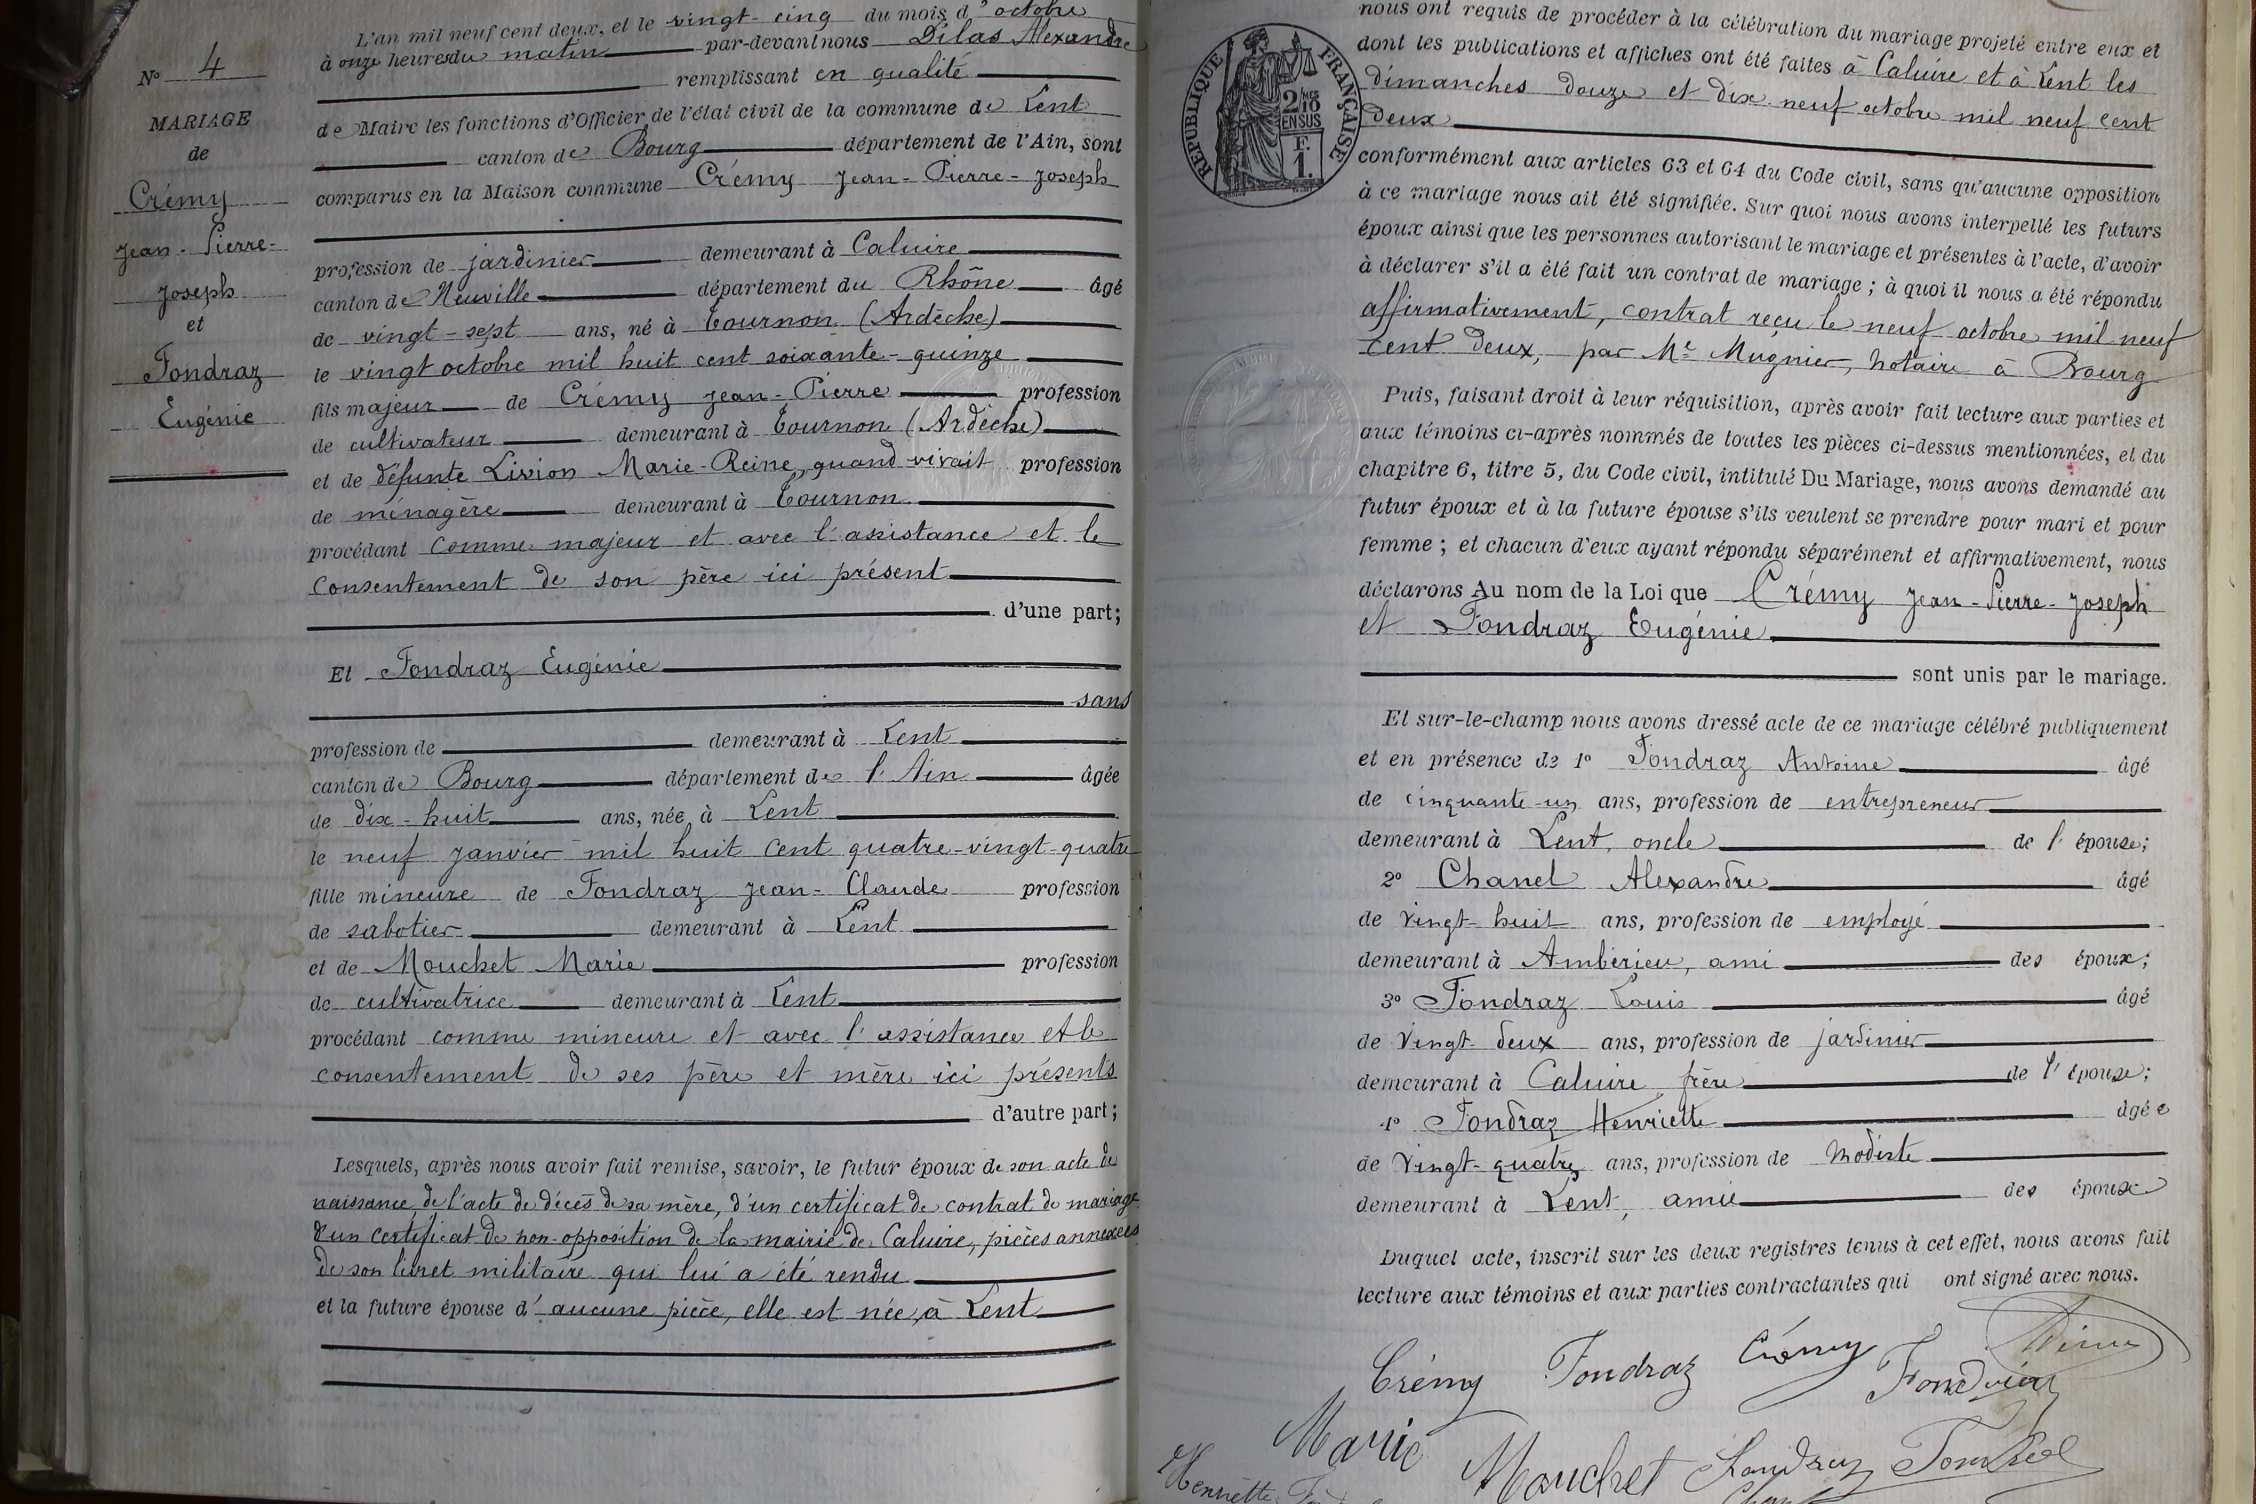 N° 4
MARIAGE
de
Crémy
Jean-Pierre-
Joseph
et
Fondraz
Eugénie
L'an mil neuf cent deux, et le vingt-cinq du mois d'octobre
à onze heures du matin par-devant nous Dilas Alexandre
remplissant en qualité
de Maire les fonctions d'Officier de l'état civil de la commune de Lent
canton de Bourg département de l'Ain, sont
comparus en la Maison commune Crémy Jean-Pierre-Joseph
profession de jardinier demeurant à Caluire
canton de Neuville département du Rhône âgé
de vingt-sept ans, né à Tournon (Ardèche)
le vingt octobre mil huit cent soixante-quinze
fils majeur de Crémy Jean-Pierre profession
de cultivateur demeurant à Tournon (Ardèche)
et de défunte Livion Marie-Reine, quand vivait profession
de ménagère demeurant à Tournon
procédant comme majeur et avec l'assistance et le
consentement de son père ici présent
d'une part;
Et Fondraz Eugénie
sans
profession de demeurant à Lent
canton de Bourg département de l'Ain âgée
de dix-huit ans, née à Lent
le neuf janvier mil huit cent quatre-vingt-quatre
fille mineure de Fondraz Jean-Claude profession
de sabotier demeurant à Lent
et de Mouchet Marie profession
de cultivatrice demeurant à Lent
procédant comme mineure et avec l'assistance et le
consentement de ses père et mère ici présents
d'autre part;
Lesquels, après nous avoir fait remise, savoir, le futur époux de son acte de
naissance, de l'acte de décès de sa mère, d'un certificat de contrat de mariage
d'un certificat de non-opposition de la mairie de Caluire, pièces annexées
de son livret militaire qui lui a été rendu
et la future épouse d'aucune pièce, elle est née, à Lent
RÉPUBLIQUE FRANÇAISE
2/10
EN SUS
F.
1.
nous ont requis de procéder à la célébration du mariage projeté entre eux et
dont les publications et affiches ont été faites à Caluire et à Lent les
dimanches douze et dix-neuf octobre mil neuf cent
deux
conformément aux articles 63 et 64 du Code civil, sans qu'aucune opposition
à ce mariage nous ait été signifiée. Sur quoi nous avons interpellé les futurs
époux ainsi que les personnes autorisant le mariage et présentes à l'acte, d'avoir
à déclarer s'il a été fait un contrat de mariage; à quoi il nous a été répondu
affirmativement, contrat reçu le neuf octobre mil neuf
cent deux, par Me Mugnier, notaire à Bourg
Puis, faisant droit à leur réquisition, après avoir fait lecture aux parties et
aux témoins ci-après nommés de toutes les pièces ci-dessus mentionnées, et du
chapitre 6, titre 5, du Code civil, intitulé Du Mariage, nous avons demandé au
futur époux et à la future épouse s'ils veulent se prendre pour mari et pour
femme; et chacun d'eux ayant répondu séparément et affirmativement, nous
déclarons Au nom de la Loi que Crémy Jean-Pierre-Joseph
et Fondraz Eugénie
sont unis par le mariage.
Et sur-le-champ nous avons dressé acte de ce mariage célébré publiquement
et en présence de 1° Fondraz Antoine âgé
de cinquante-un ans, profession de entrepreneur
demeurant à Lent, oncle de l'épouse;
2° Chanel Alexandre âgé
de vingt-huit ans, profession de employé
demeurant à Ambérieu, ami des époux;
3° Fondraz Louis âgé
de vingt-deux ans, profession de jardinier
demeurant à Caluire, frère de l'épouse;
4° Fondraz Henriette âgée
de vingt-quatre ans, profession de modiste
demeurant à Lent, amie des époux
Duquel acte, inscrit sur les deux registres tenus à cet effet, nous avons fait
lecture aux témoins et aux parties contractantes qui ont signé avec nous.
Crémy Fondraz Crémy Fondraz
Marie Mouchet
Henriette